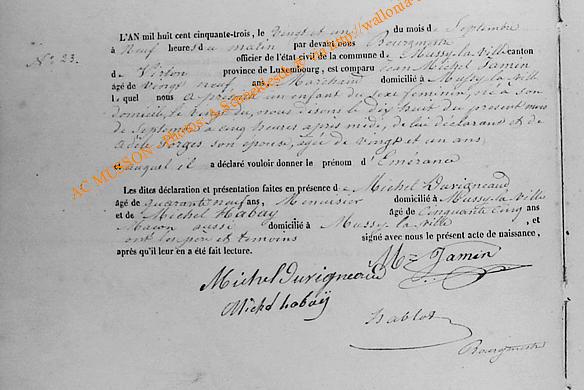 N° 23.
L'AN mil huit cent cinquante-trois, le vingt et un du mois de Septembre
à neuf heures du matin par devant nous Bourgmestre
officier de l'état civil de la commune de Mussy-la-Ville canton
de Virton province de Luxembourg, est comparu Jean Michel Jamin
âgé de vingt neuf ans, Marchand domicilié à Mussy-la-Ville
lequel nous a présenté un enfant du sexe féminin, né à son
domicile, le dix huit du présent mois
de Septembre à cinq heures après midi, de lui déclarant et de
Adèle Forges son épouse, âgée de vingt et un ans
auquel il a déclaré vouloir donner le prénom d'Emérance
Les dites déclaration et présentation faites en présence de Michel Duvigneaud
âgé de quarante neuf ans, Menuisier domicilié à Mussy-la-Ville
et de Michel Habay âgé de cinquante cinq ans
Maçon aussi domicilié à Mussy la Ville et
ont les père et témoins signé avec nous le présent acte de naissance,
après qu'il leur en a été fait lecture.
Michel Duvigneaud Jamin
Michel habaÿ
Bourgmestre
AC MUSSON - Photos: A Schneidesch - http://wallonia-